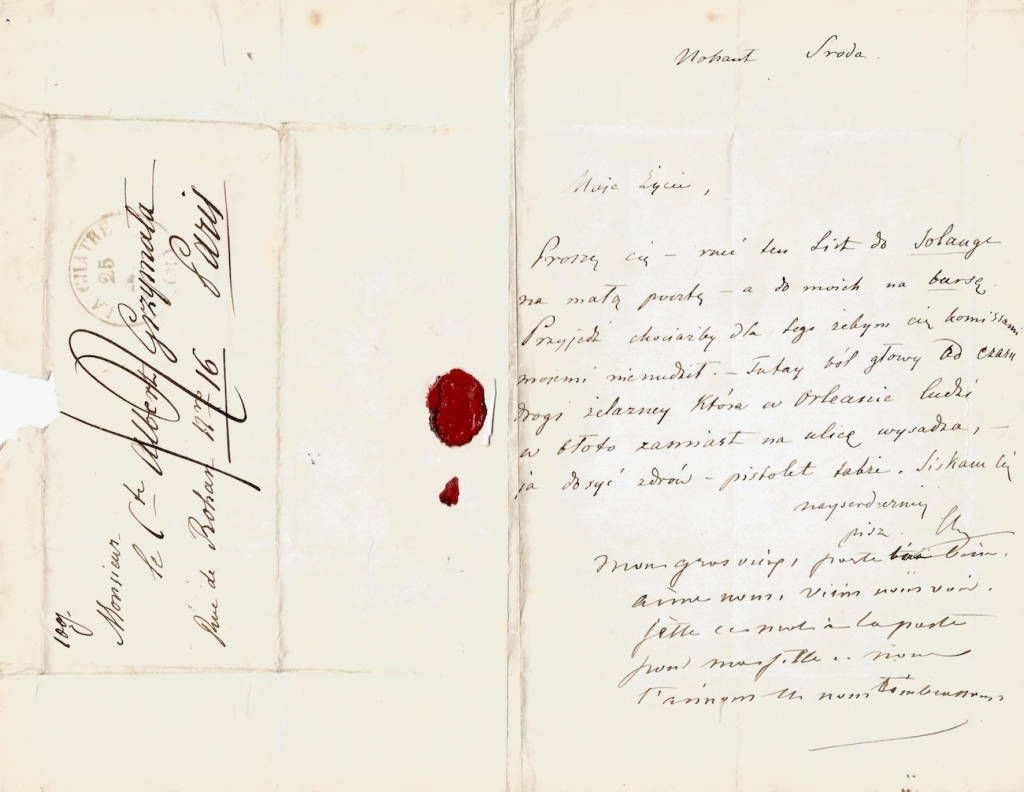 109.
Monsieur
le Cte Albert Grzymała
Rue de Rohan Nro 16 Paris
LA CHATRE
25
Nohant Sroda
Moje Życie,
Proszę cię – rzuć ten List do Solange
na małą pocztę – a do moich na bursę.
Przyjedź chociażby dla tego żebym cię komissami
mojemi nienudził. – Tutay ból głowy od czasu
drogi żelazney która w Orleanie ludzi
w błoto zamiast na ulicę wysadza, –
ja dosyć zdrów – pistolet także. Siskam cię
nayserdeczniey
pisz. Ch
Mon gros vieux, porte bien.
aime nous, viens nous voir.
jette ce mot à la poste
pour ma fille .. nous
t'aimons et nous t'embrassons